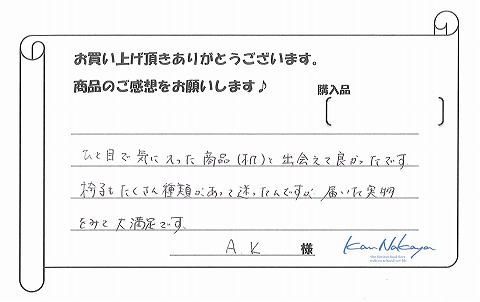 お買い上げ頂きありがとうございます。
商品のご感想をお願いします♪
購入品
ひと目で気に入った商品(机)と出会えて良かったです
椅子もたくさん種類があって迷ったんですが 届いた実物
をみて大満足です。
A.K 様
Kan Nakaya